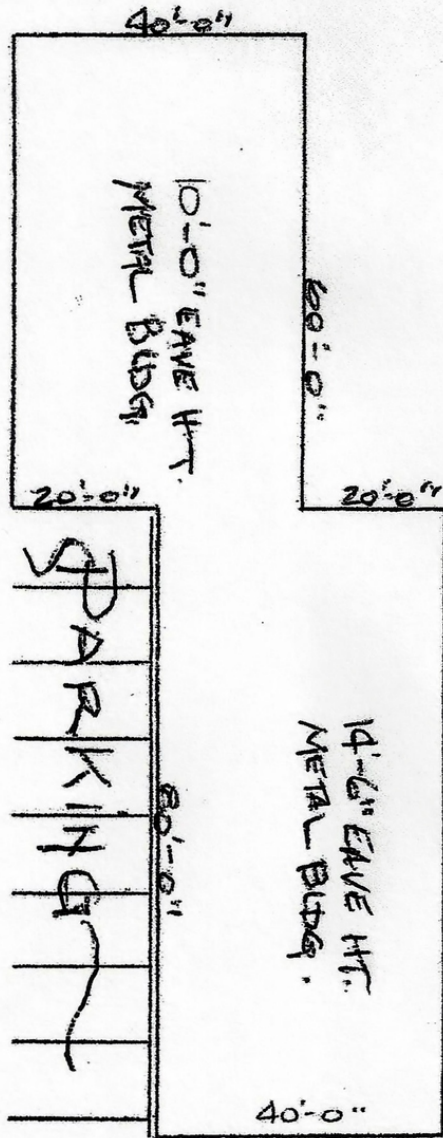 40'-0"
10'-0" EAVE HT.
METAL BLDG.
60'-0"
20'-0"
20'-0"
PARKING
80'-0"
14'-6" EAVE HT.
METAL BLDG.
40'-0"